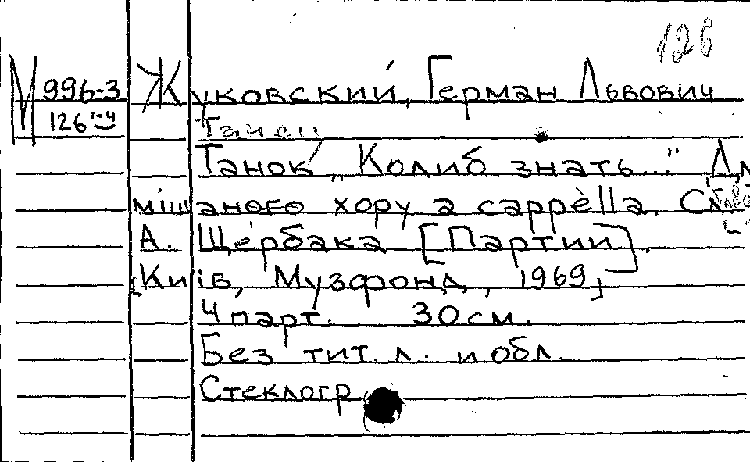 126
М 996-3 Жуковский, Герман Львович
126 п-у Танец
Танок „Колиб знать..." Для
мішаного хору a cappèlla. Сл.
А. Щербака [Партии].
[Київ, Музфонд, 1969]
4 парт. 30 см.
Без тит. л. и обл.
Стеклогр.